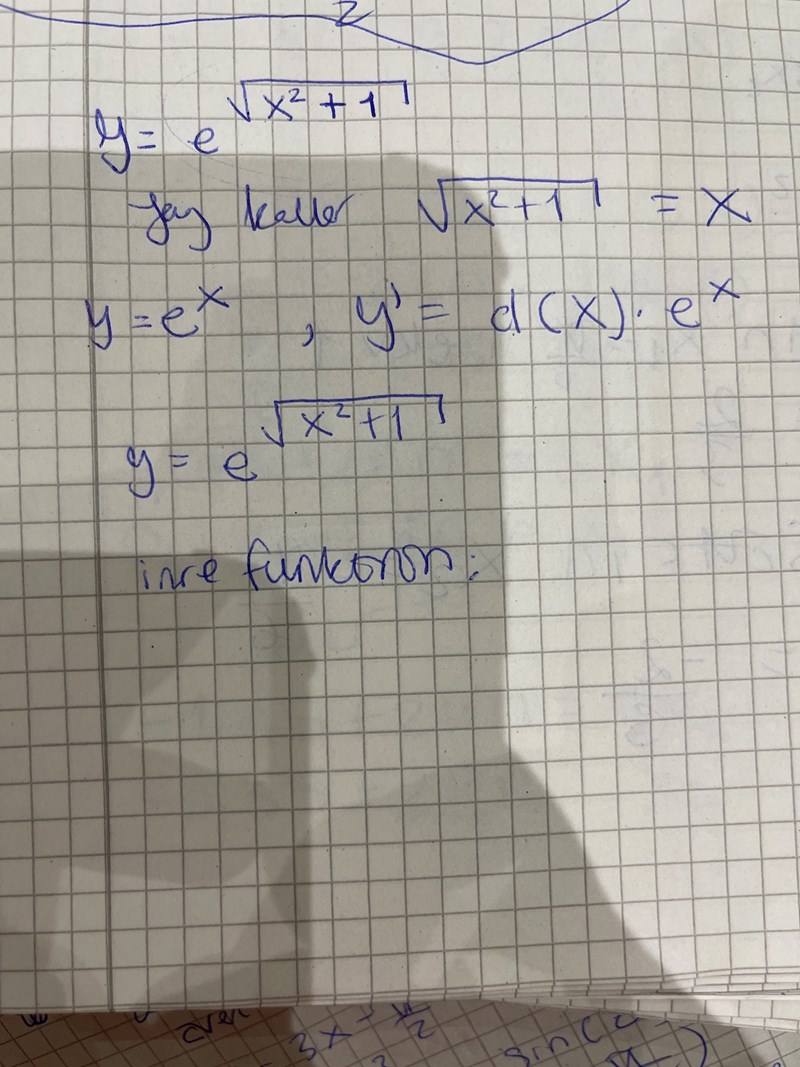 2
y = e^√(x² + 1)
Jag kallar √(x² + 1) = X
y = e^X , y' = d(X) · e^X
y = e^√(x² + 1)
inre funktion:
3x = π/2
sin(